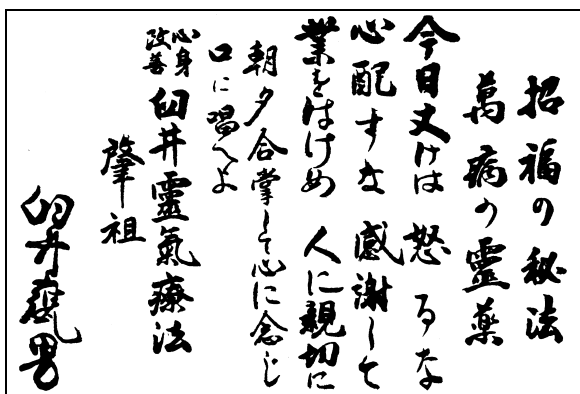 招福の秘法
萬病の靈薬
今日丈けは 怒るな
心配すな 感謝して
業をはけめ 人に親切に
朝夕合掌して心に念じ
口に唱へよ
心身改善 臼井靈氣療法
肇祖
臼井甕男